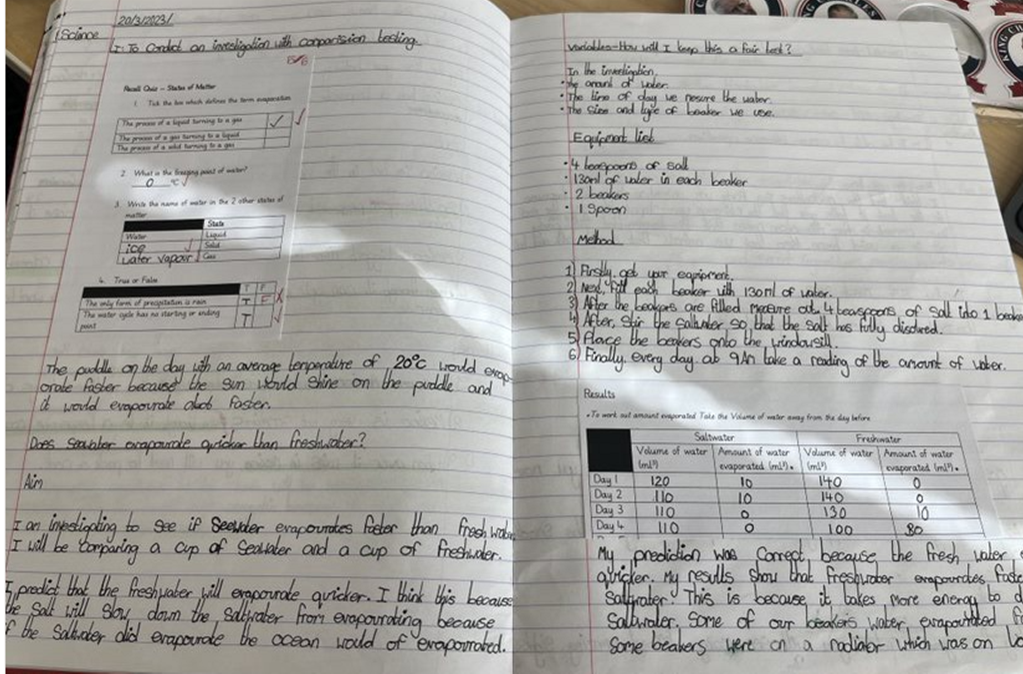 20/3/2023/
Science
L: To Conduct an investigation with comparision testing.
5/6
Recall Quiz – States of Matter
1. Tick the box which defines the term evaporation
The process of a liquid turning to a gas ✓
The process of a gas turning to a liquid
The process of a solid turning to a gas
2. What is the freezing point of water?
0 °C
3. Write the name of water in the 2 other states of
matter
State
Water Liquid
ice Solid
water vapour Gas
4. True or False
T F
The only form of precipitation is rain T F
The water cycle has no starting or ending
point T
The puddle on the day with an average temperature of 20°c would evap-
orate faster because the sun would shine on the puddle and
it would evapourate alot faster.
Does seawater evapourate quicker than freshwater?
Aim
I an investigating to see if Seawater evapourates faster than fresh
I will be comparing a cup of Seawater and a cup of freshwater.
I predict that the freshwater will evapourate quicker. I think this because
the salt will slow down the saltwater from evapourating because
if the Saltwater did evapourate the ocean would of evapourated.
variables-How will I keep this a fair test?
In the investigation,
• the amount of water
• The time of day we mesure the water.
• The Size and type of beaker we use.
Equipment list
• 4 teaspoons of salt
• 130ml of water in each beaker
• 2 beakers
• 1 Spoon
Method
1) Firstly, get your equipment.
2) Next, fill each beaker with 130ml of water.
3) After the beakers are filled measure out 4 teaspoons of salt into 1
4) After, Stir the saltwater so that the salt has fully
5) Place the beakers onto the windowsill.
6) Finally, every day at 9Am take a reading of the amount of water.
Results
•To work out amount evaporated Take the Volume of water away from the day before
Saltwater Freshwater
Volume of water (ml³) Amount of water evaporated (ml³)• Volume of water (ml³) Amount of water evaporated (ml³)•
Day 1 120 10 140 0
Day 2 110 10 140 0
Day 3 110 0 130 10
Day 4 110 0 100 80
My prediction was correct, because the fresh water
quicker. My results show that freshwater evapourates
Saltwater. This is because it takes more energy to
Saltwater. Some of our beakers water evapourated
Some beakers were on a radiator which was on